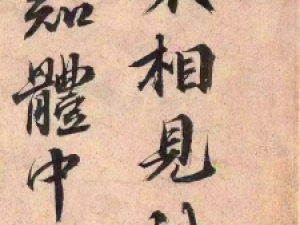 相見
知體中